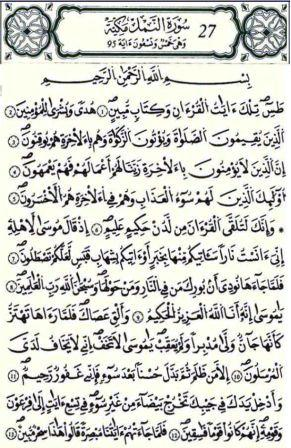 سُورَةُ النَّمْلِ مَكِّيَّةٌ
27
وَهْيَ خَمْسٌ وَتِسْعُونَ ءَايَةً 95
بِسْمِ اللَّهِ الرَّحْمَٰنِ الرَّحِيمِ
طَسِ تِلْكَ ءَايَٰتُ الْقُرْءَانِ وَكِتَابٍ مُّبِينٍ 1 هُدًى وَبُشْرَىٰ لِلْمُومِنِينَ 2
الَّذِينَ يُقِيمُونَ الصَّلَوٰةَ وَيُوتُونَ الزَّكَوٰةَ وَهُم بِالَاخِرَةِ هُمْ يُوقِنُونَ 3
إِنَّ الَّذِينَ لَا يُومِنُونَ بِالَاخِرَةِ زَيَّنَّا لَهُمُ أَعْمَٰلَهُمْ فَهُمْ يَعْمَهُونَ 4
أُوْلَٰئِكَ الَّذِينَ لَهُمْ سُوءُ الْعَذَابِ وَهُمْ فِي الَاخِرَةِ هُمُ الَاخْسَرُونَ 5
وَإِنَّكَ لَتُلَقَّى الْقُرْءَانَ مِن لَّدُنْ حَكِيمٍ عَلِيمٍ 6 إِذْ قَالَ مُوسَىٰ لِأَهْلِهِ
إِنِّيَ ءَانَسْتُ نَارًا سَـَٔاتِيكُم مِّنْهَا بِخَبَرٍ أَوَ ـاتِيكُم بِشِهَابِ قَبَسٍ لَّعَلَّكُمْ تَصْطَلُونَ 7
فَلَمَّا جَاءَهَا نُودِيَ أَن بُورِكَ مَن فِي النَّارِ وَمَنْ حَوْلَهَا وَسُبْحَٰنَ اللَّهِ رَبِّ الْعَٰلَمِينَ 8
يَٰمُوسَىٰ إِنَّهُ أَنَا اللَّهُ الْعَزِيزُ الْحَكِيمُ 9 وَأَلْقِ عَصَاكَ فَلَمَّا رَءَاهَا تَهْتَزُّ
كَأَنَّهَا جَانٌّ وَلَّىٰ مُدْبِرًا وَلَمْ يُعَقِّبْ يَٰمُوسَىٰ لَا تَخَفِ اِنِّي لَا يَخَافُ لَدَيَّ
الْمُرْسَلُونَ 10 إِلَّا مَن ظَلَمَ ثُمَّ بَدَّلَ حُسْنًا بَعْدَ سُوءٍ فَإِنِّي غَفُورٌ رَّحِيمٌ 11
وَأَدْخِلْ يَدَكَ فِي جَيْبِكَ تَخْرُجْ بَيْضَاءَ مِنْ غَيْرِ سُوءٍ فِي تِسْعِ ءَايَٰتٍ اِلَىٰ فِرْعَوْنَ
وَقَوْمِهِ إِنَّهُمْ كَانُوا قَوْمًا فَٰسِقِينَ 12 فَلَمَّا جَاءَتْهُمُ ءَايَٰتُنَا مُبْصِرَةً قَالُوا هَٰذَا سِحْرٌ مُّبِينٌ 13